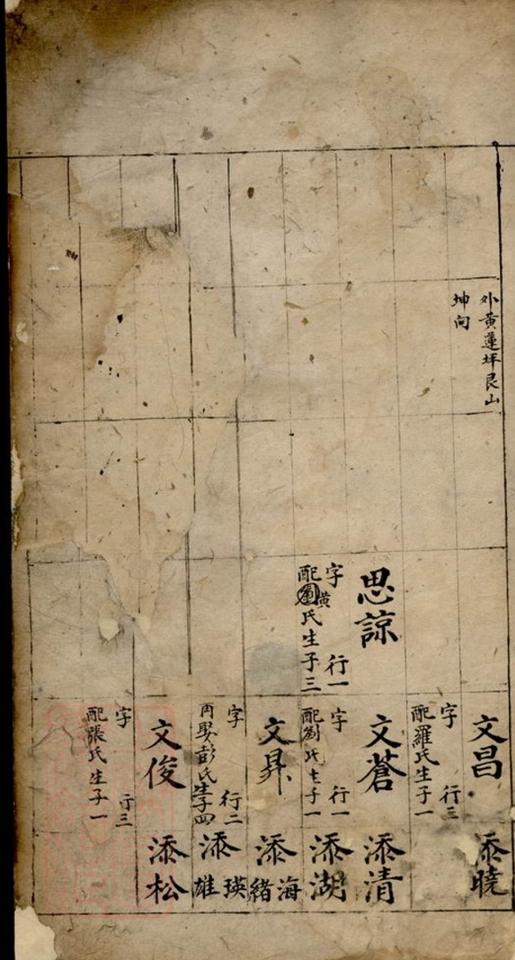 外黃蓮坪艮山
坤向
思諒
字 行一
配黃氏生子三
文昌
字 行三
配羅氏生子一
文蒼
字 行一
配劉氏生子一
文昇
字 行二
再娶彭氏生子四
文俊
字 行三
配張氏生子一
添曉
添清
添湖
添海緒
添瑛雄
添松